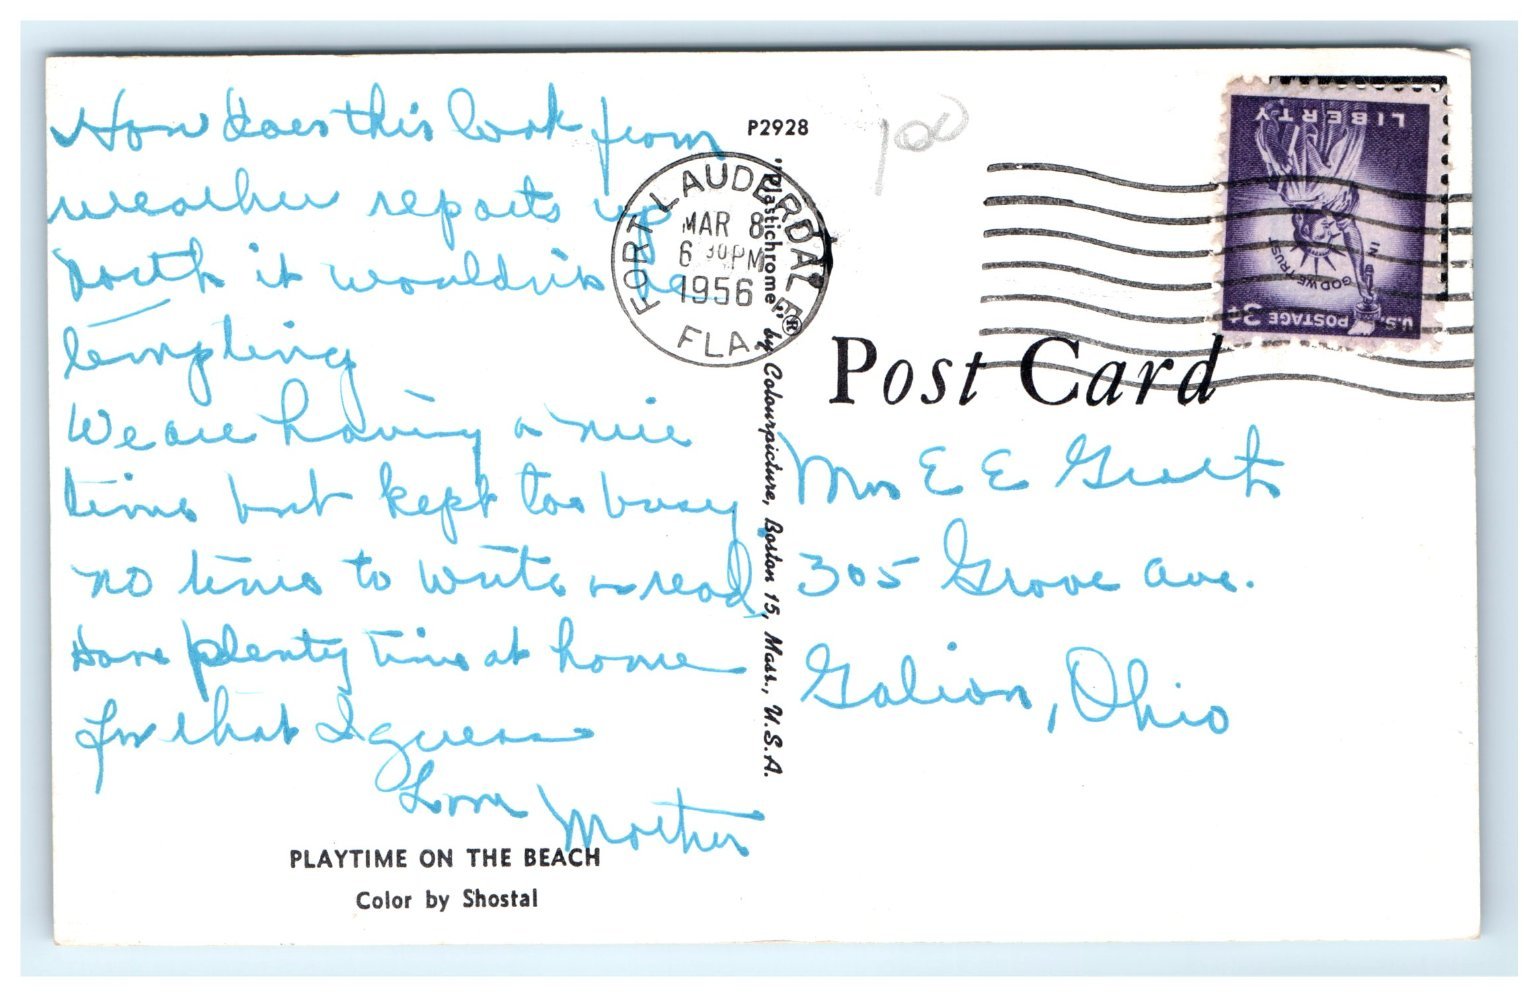 How does this look from
weather reports up
north it wouldn't be
tempting
We are having a nice
time but kept too busy
no time to write or read,
Have plenty time at home
for that I guess
Love Mother
PLAYTIME ON THE BEACH
Color by Shostal
P2928
100
FORT LAUDERDALE
MAR 8
6 30 PM
1956
FLA.
"Plastichrome"® by Colourpicture, Boston 15, Mass., U.S.A.
LIBERTY
IN GOD WE TRUST
U.S. POSTAGE 3¢
Post Card
Mrs E E
305 Grove Ave.
Galion, Ohio